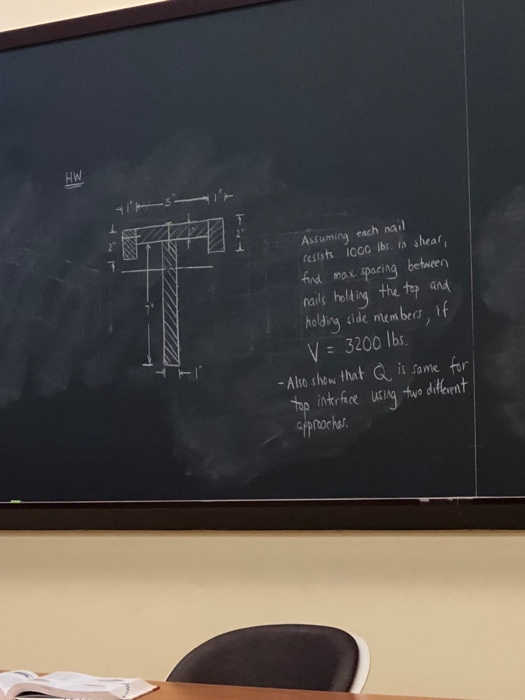 HW
1" 5" 1"
2" 1" 2"
7"
1"
Assuming each nail
resists 1000 lbs. in shear,
find max spacing between
nails holding the top and
holding side members, if
V = 3200 lbs.
- Also show that Q is same for
top interface using two different
approaches.